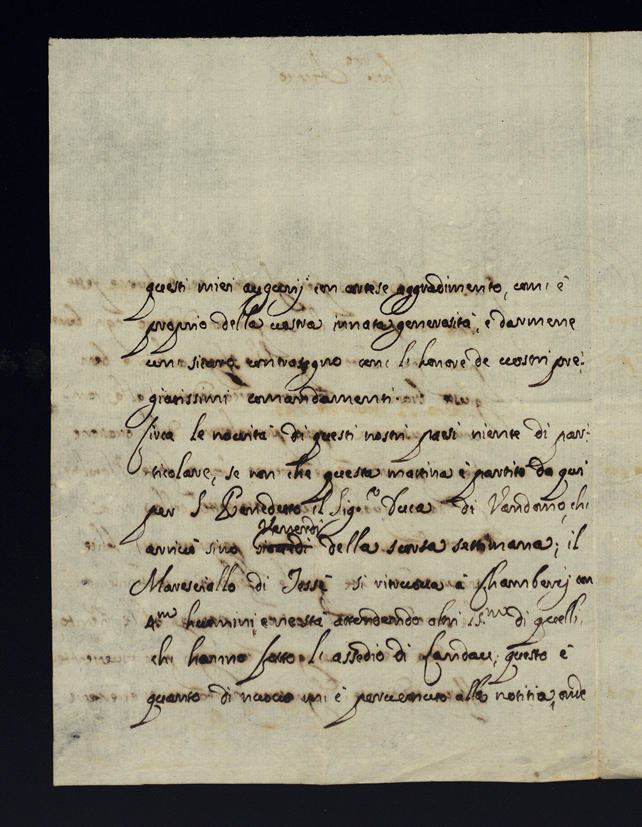 questi miei augurij con cortese aggradimento, com' è
proprio della vostra innata generosità, e darmene
un sicuro contrasegno con li honore de vostri pre:
giatissimi comandamenti.
Circa le novità di questi nostri paesi niente di par:
ticolare, se non che questa mattina è partito da qui
per S. Benedetto il Sig.^re Duca di Vandomo, chi
Venerdì
arrivò sino della scorsa settimana; il
Maresciallo di Tessè si ritrovava à Chamberrj con
4.^m huomini, e ne stà attendendo altri 15.^m di quelli,
chi hanno fatto l' assedio di Landau; questo è
quanto di nuovo mi è pervenuto alla notitia, onde